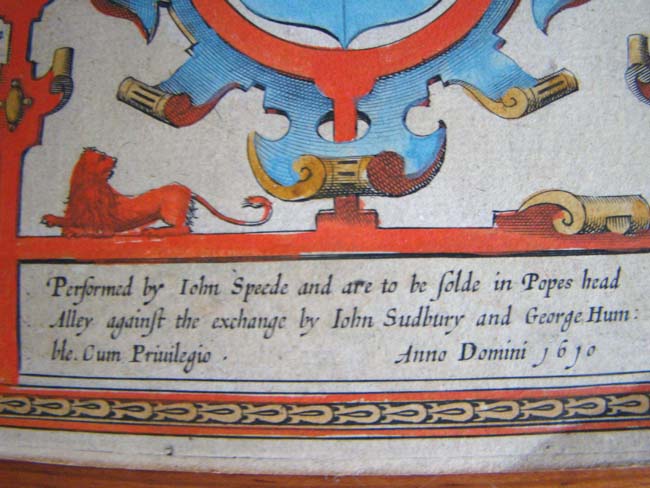 Performed by Iohn Speede and are to be ſolde in Popes head
Alley againſt the exchange by Iohn Sudbury and George Hum:
ble. Cum Priuilegio . Anno Domini 1610